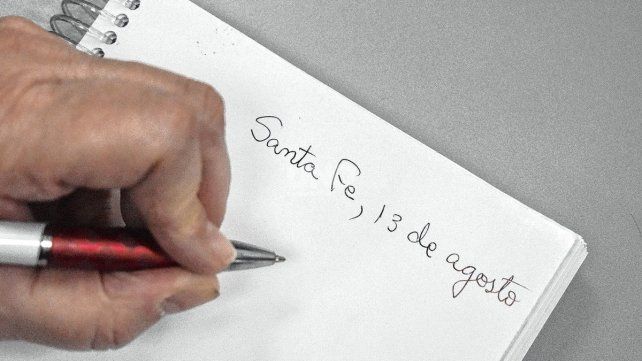 Santa Fe, 13 de agosto